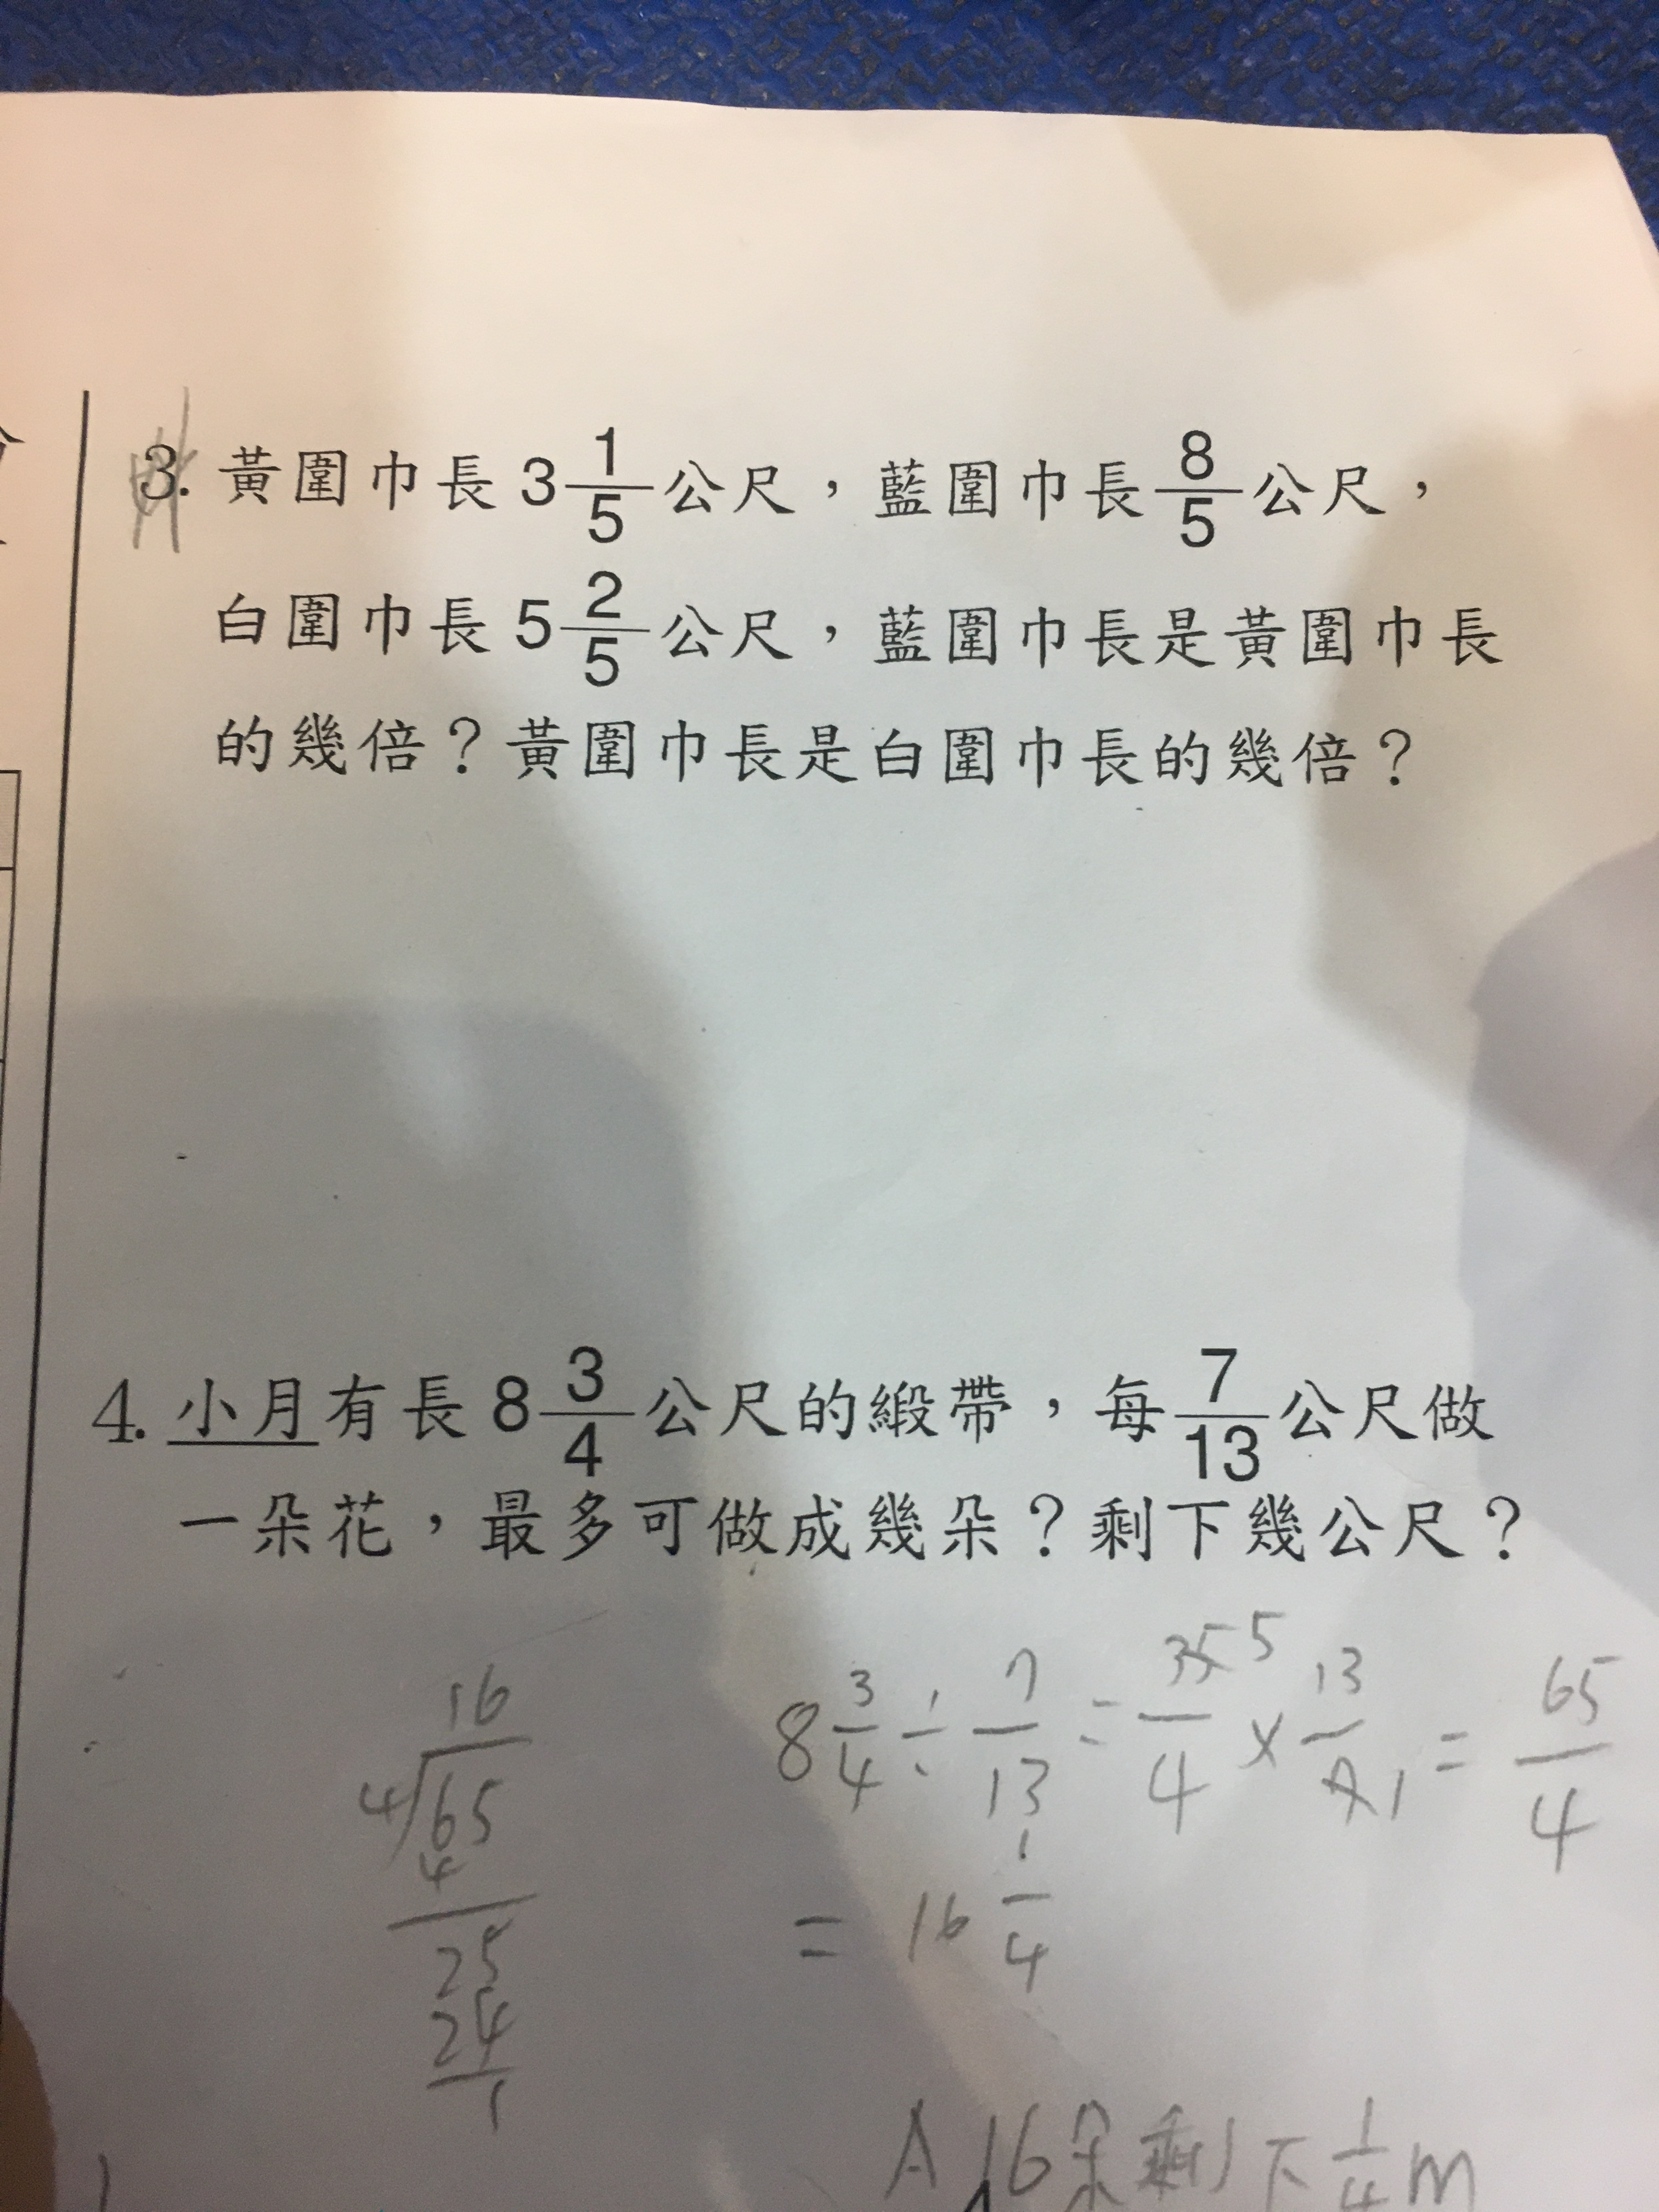 3. 黃圍巾長3 1/5公尺，藍圍巾長8/5公尺，
白圍巾長5 2/5公尺，藍圍巾長是黃圍巾長
的幾倍？黃圍巾長是白圍巾長的幾倍？
4. 小月有長8 3/4公尺的緞帶，每7/13公尺做
一朵花，最多可做成幾朵？剩下幾公尺？
8 3/4 ÷ 7/13 = 35/4 5 × 13/7 1 = 65/4
= 16 1/4
16
4 65
4
25
24
1
A 16朵剩下 1/4 m